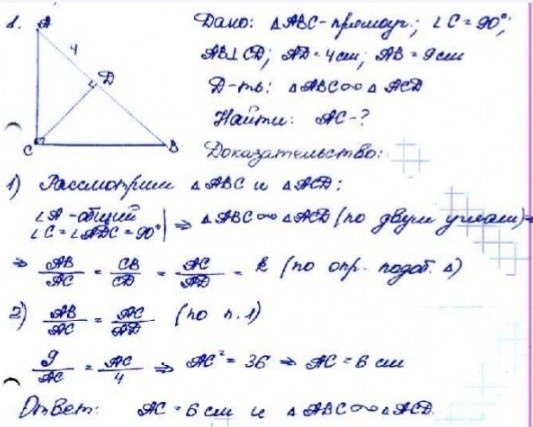 1. A
4
D
C B
Дано: △ABC - прямоуг.; ∠C = 90°;
AB⊥CD; AD = 4см; AB = 9см
Д-ть: △ABC ∞ △ACD
Найти: AC-?
Доказательство:
1) Рассмотрим △ABC и △ACD:
∠A - общий
∠C = ∠ADC = 90° | ⇒ △ABC ∞ △ACD (по двум углам) ⇒
⇒ AB/AC = CB/CD = AC/AD = k (по опр. подоб. △)
2) AB/AC = AC/AD (по п. 1)
9/AC = AC/4 ⇒ AC² = 36 ⇒ AC = 6 см
Ответ: AC = 6 см и △ABC ∞ △ACD.